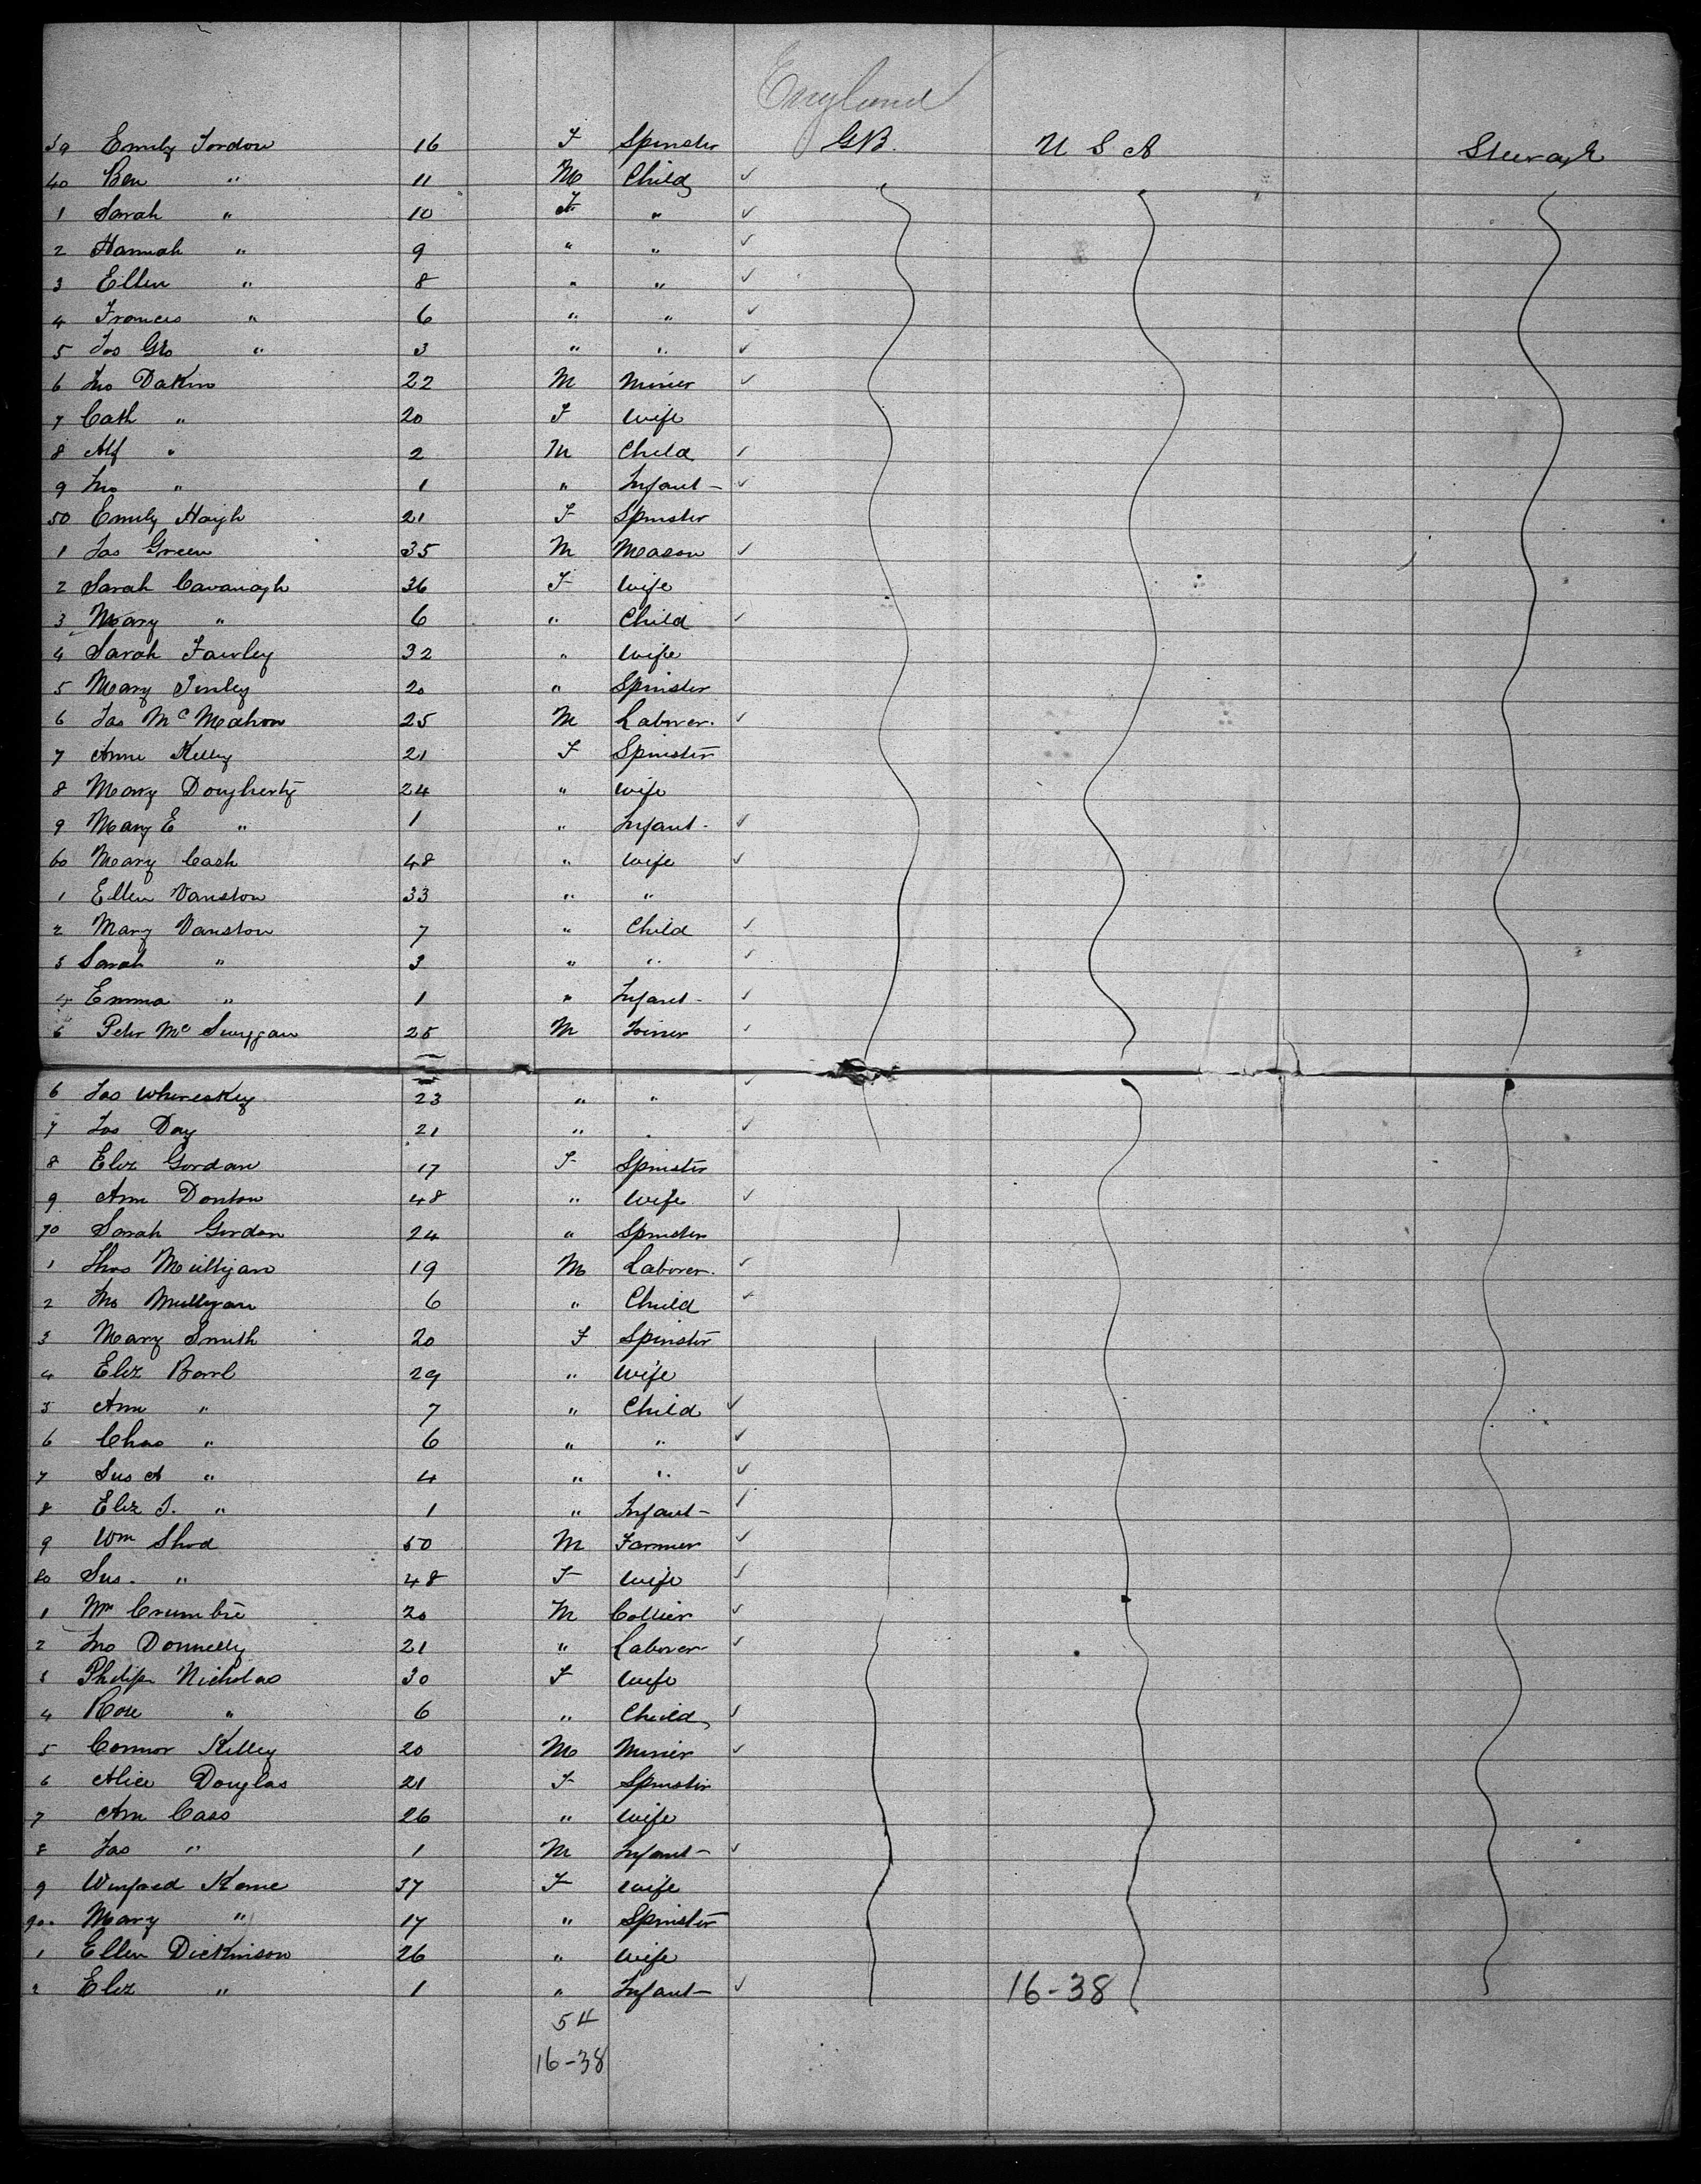 England
39 Emily Jordon 16 F Spinster GB. U S A Steerage
40 Ben " 11 M Child
1 Sarah " 10 F "
2 Hannah " 9 " "
3 Ellen " 8 " "
4 Frances " 6 " "
5 Jos Geo " 3 " "
6 Jno Dakin 22 M Miner
7 Cath " 20 F Wife
8 Alf " 2 M Child
9 Jno " 1 " Infant
50 Emily Haigh 21 F Spinster
1 Jas Green 35 M Mason
2 Sarah Cavanagh 36 F Wife
3 Mary " 6 " Child
4 Sarah Fawley 32 " Wife
5 Mary Finley 20 " Spinster
6 Jas McMahon 25 M Laborer.
7 Anne Kelly 21 F Spinster
8 Mary Dougherty 24 " Wife
9 Mary E " 1 " Infant
60 Mary Cash 48 " Wife
1 Ellen Vanston 33 " "
2 Mary Vanston 7 " Child
3 Sarah " 3 " "
4 Emma " 1 " Infant
5 Peter Mc 25 M Joiner
6 Jas 23 " "
7 Jas Day 21 " "
8 Eliz Gordan 17 F Spinster
9 Ann Donton 48 " Wife
70 Sarah Gordon 24 " Spinster
1 Thos Mulligan 19 M Laborer.
2 Jno Mulligan 6 " Child
3 Mary Smith 20 F Spinster
4 Eliz Barl 29 " Wife
5 Ann " 7 " Child
6 Chas " 6 " "
7 Sus A " 4 " "
8 Eliz J. " 1 " Infant
9 Wm Shod 50 M Farmer
80 Sus. " 48 F Wife
1 Wm Crumbie 20 M Collier
2 Jno Donnelly 21 " Laborer
3 Philip Nicholas 30 F Wife
4 Rose " 6 " Child
5 Connor Kelley 20 M Miner
6 Alice Douglas 21 F Spinster
7 Ann Cass 26 " Wife
8 Jas " 1 M Infant
9 Winfred Kane 37 F Wife
90 Mary " 17 " Spinster
1 Ellen Dickinson 26 " Wife
2 Eliz " 1 " Infant 16-38
54
16-38